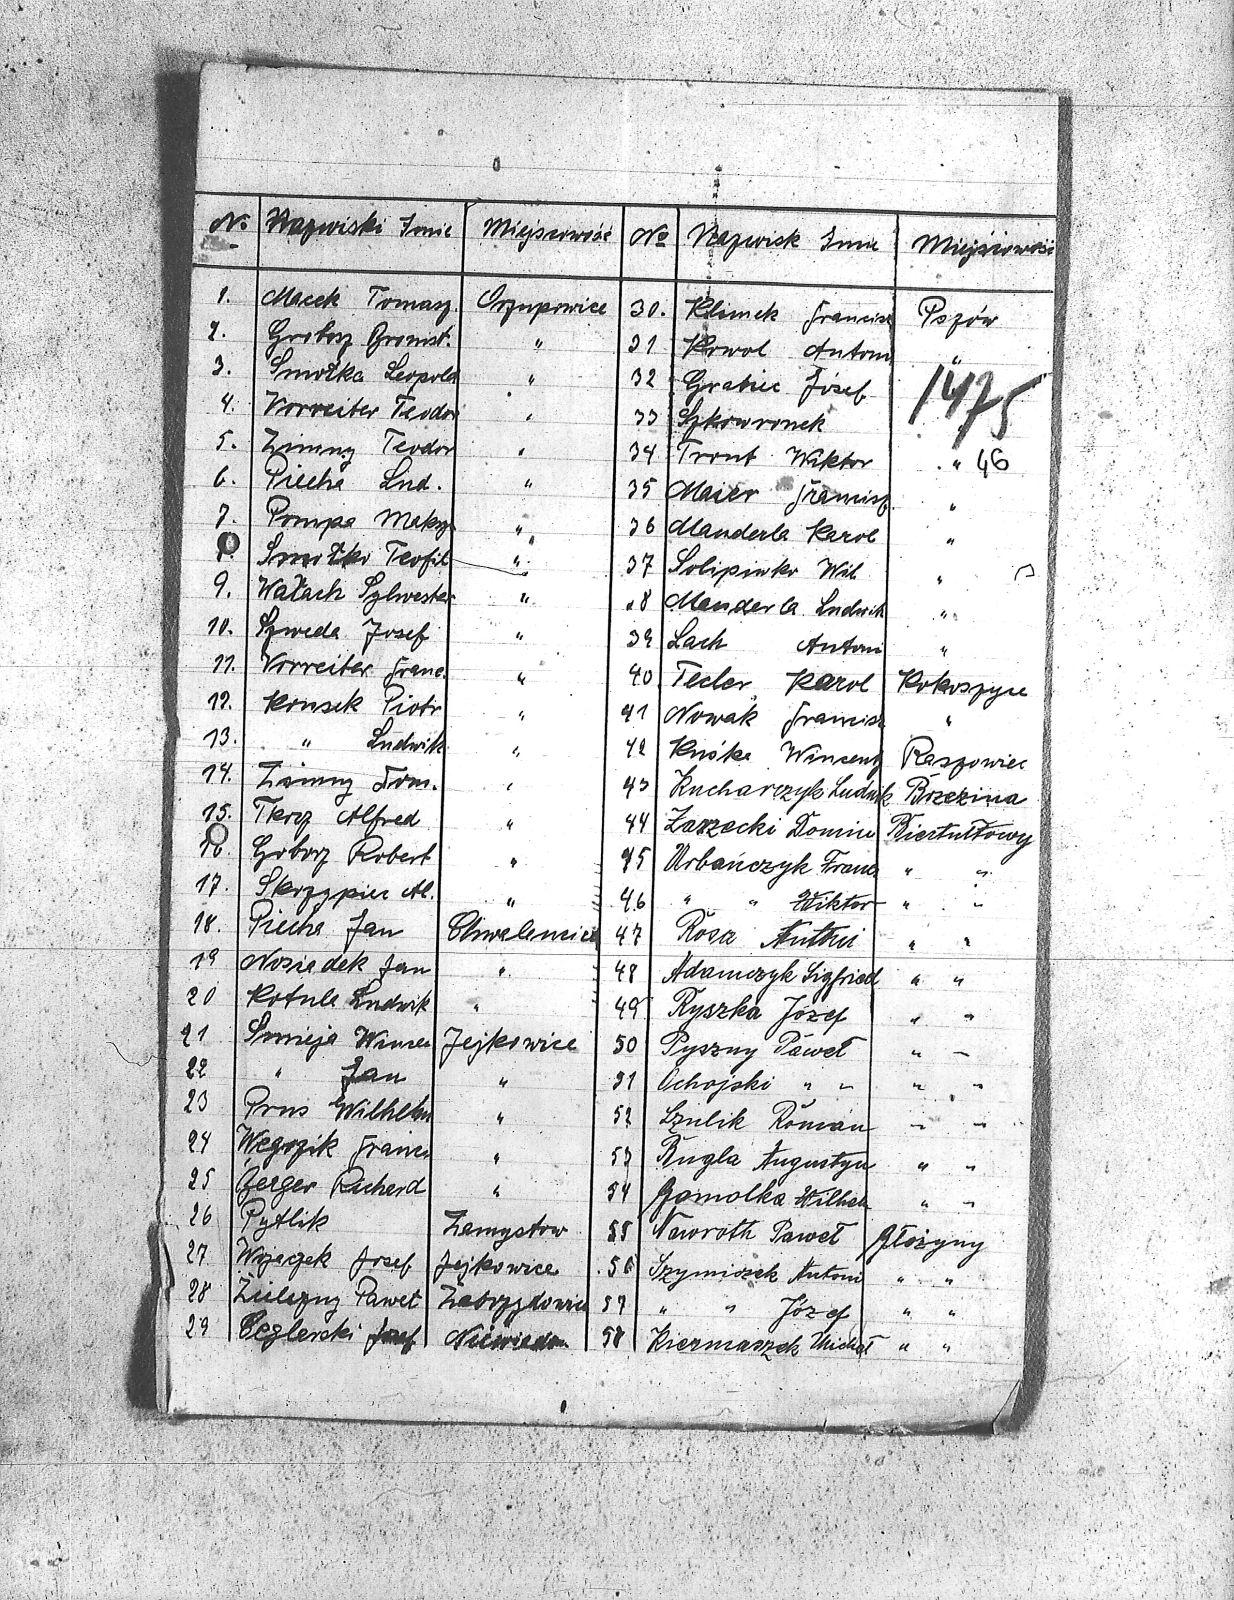 No Nazwiski Imie Miejscowość No Nazwisk Imie Miejściowość
1. Macek Tomasz. Orzupowice 30. Klimek Francisz Pszów
2. Grobosz Bronisł. " 31 Kowol Antoni "
3. Smołka Leopold " 32 Grabiec Józef 1475
4. Vorreiter Teodor " 33 Szkowronek
5. Zimny Teodor " 34 Tront Wiktor " 46
6. Piecha Lud. " 35 Maier Francisz "
7. Pompa Maksy " 36 Manderla Karol "
8. Smołka Teofil " 37 Solipiwko Wil "
9. Wałach Sylwester " 38 Manderla Ludwik "
10. Szweda Josef " 39 Lach Antoni "
11. Vorreiter Franc. " 40. Tecler Karol Kokoszyce
12. Konsek Piotr " 41 Nowak Francisz "
13. " Ludwik " 42 Kuśka Wincenty Raszowiec
14. Zimny Tom. " 43 Kucharczyk Ludwik Brzezina
15. Tkocz Alfred " 44 Zarzecki Domin Biertułtowy
16. Goborz Robert " 45 Urbańczyk Franc " "
17. Skrzypiec Al. " 46 " " Wiktor " "
18. Piecha Jan Chwalencice 47 Rosa Anthni " "
19 Nosiadek Jan " 48 Adamczyk Sigfried " "
20 Kotula Ludwik " 49 Ryszka Józef " "
21 Smieja Wincen Jejkowice 50 Pyszny Paweł " "
22 " Jan " 51 Ochojski " " " "
23 Prus Wilhelm " 52 Szulik Roman " "
24 Węgrzik Franc " 53 Rugla Augustyn " "
25 Gerger Richerd " 54 Gamolka Wilhel " "
26 Pytlik Zamysłow 55 Nawroth Paweł Głożyny
27 Wojaczek Josef Jejkowice 56 Szymiczek Antoni " "
28 Żielezny Paweł Zebrzydowic 57 " " Józef " "
29 Ceglerski Josef Niewiadom. 58 Kiermaszek Michał " "